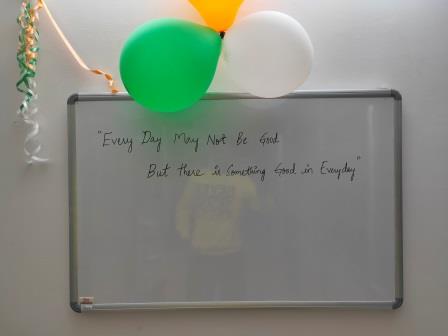 "Every Day May Not Be Good
But there is Something Good in Everyday"